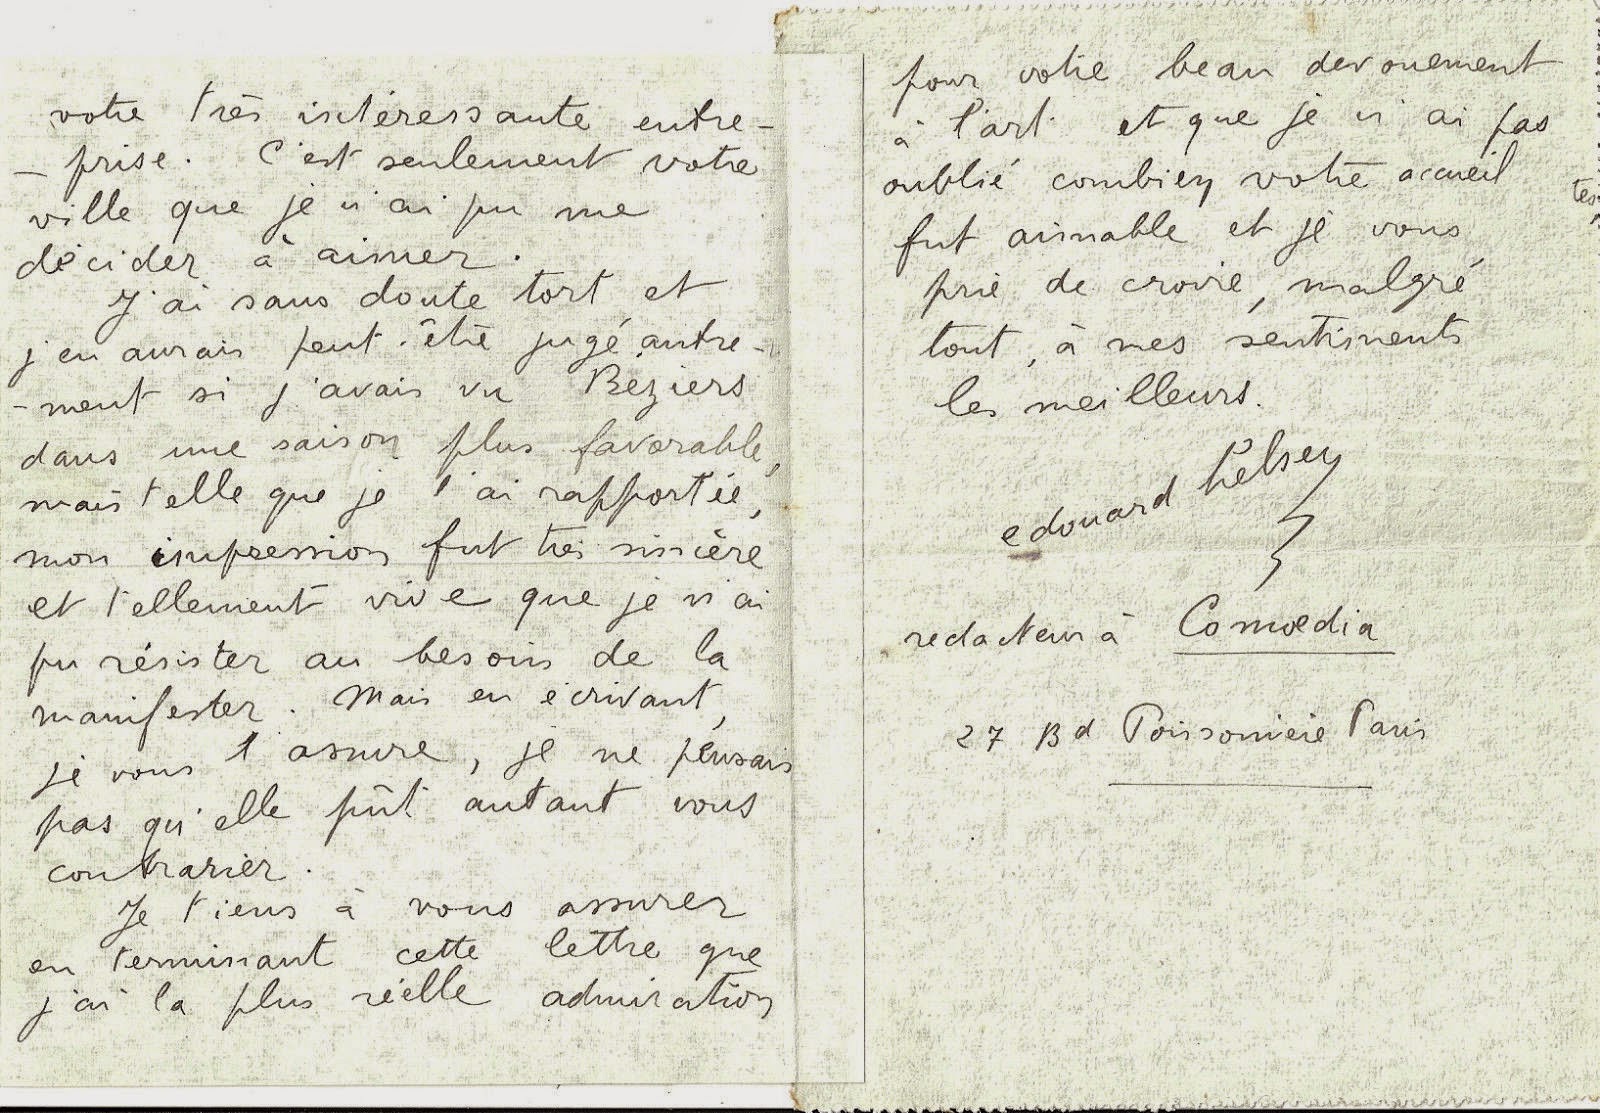 votre très intéressante entre-
- prise. C'est seulement votre
ville que je n'ai pu me
décider à aimer.
J'ai sans doute tort et
j'en aurais peut-être jugé autre-
- ment si j'avais vu Béziers
dans une saison plus favorable,
mais telle que je l'ai rapportée,
mon impression fut très sincère
et tellement vive que je n'ai
pu résister au besoin de la
manifester. Mais en écrivant,
je vous l'assure, je ne pensais
pas qu'elle pût autant vous
contrarier.
Je tiens à vous assurer
en terminant cette lettre que
j'ai la plus réelle admiration
pour votre beau devouement
à l'art et que je n'ai pas
oublié combien votre accueil
fut aimable et je vous
prie de croire, malgré
tout, à mes sentiments
les meilleurs.
edouard Helsey
redacteur à Comœdia
27 Bd Poissonière Paris